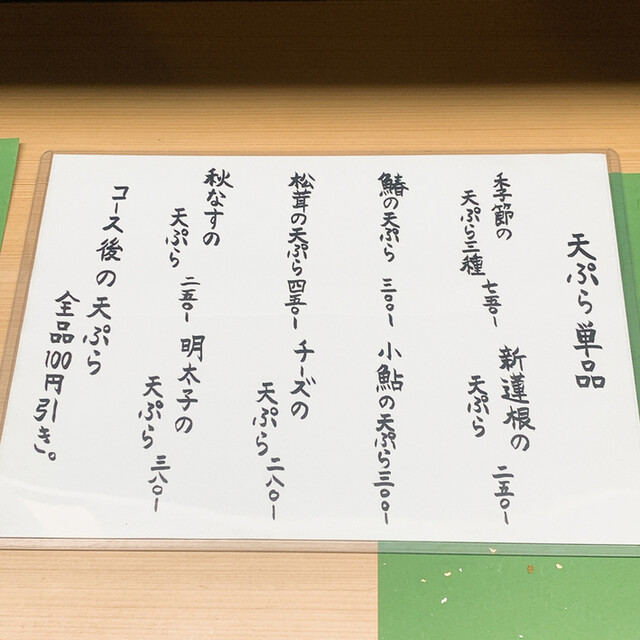 天ぷら単品
季節の
天ぷら三種 七五〇-
新蓮根の
天ぷら 二五〇-
鰆の天ぷら 三〇〇-
小鮎の天ぷら三〇〇-
松茸の天ぷら四五〇-
チーズの
天ぷら 二八〇-
秋なすの
天ぷら 二五〇-
明太子の
天ぷら 三八〇-
コース後の天ぷら
全品100円引き。